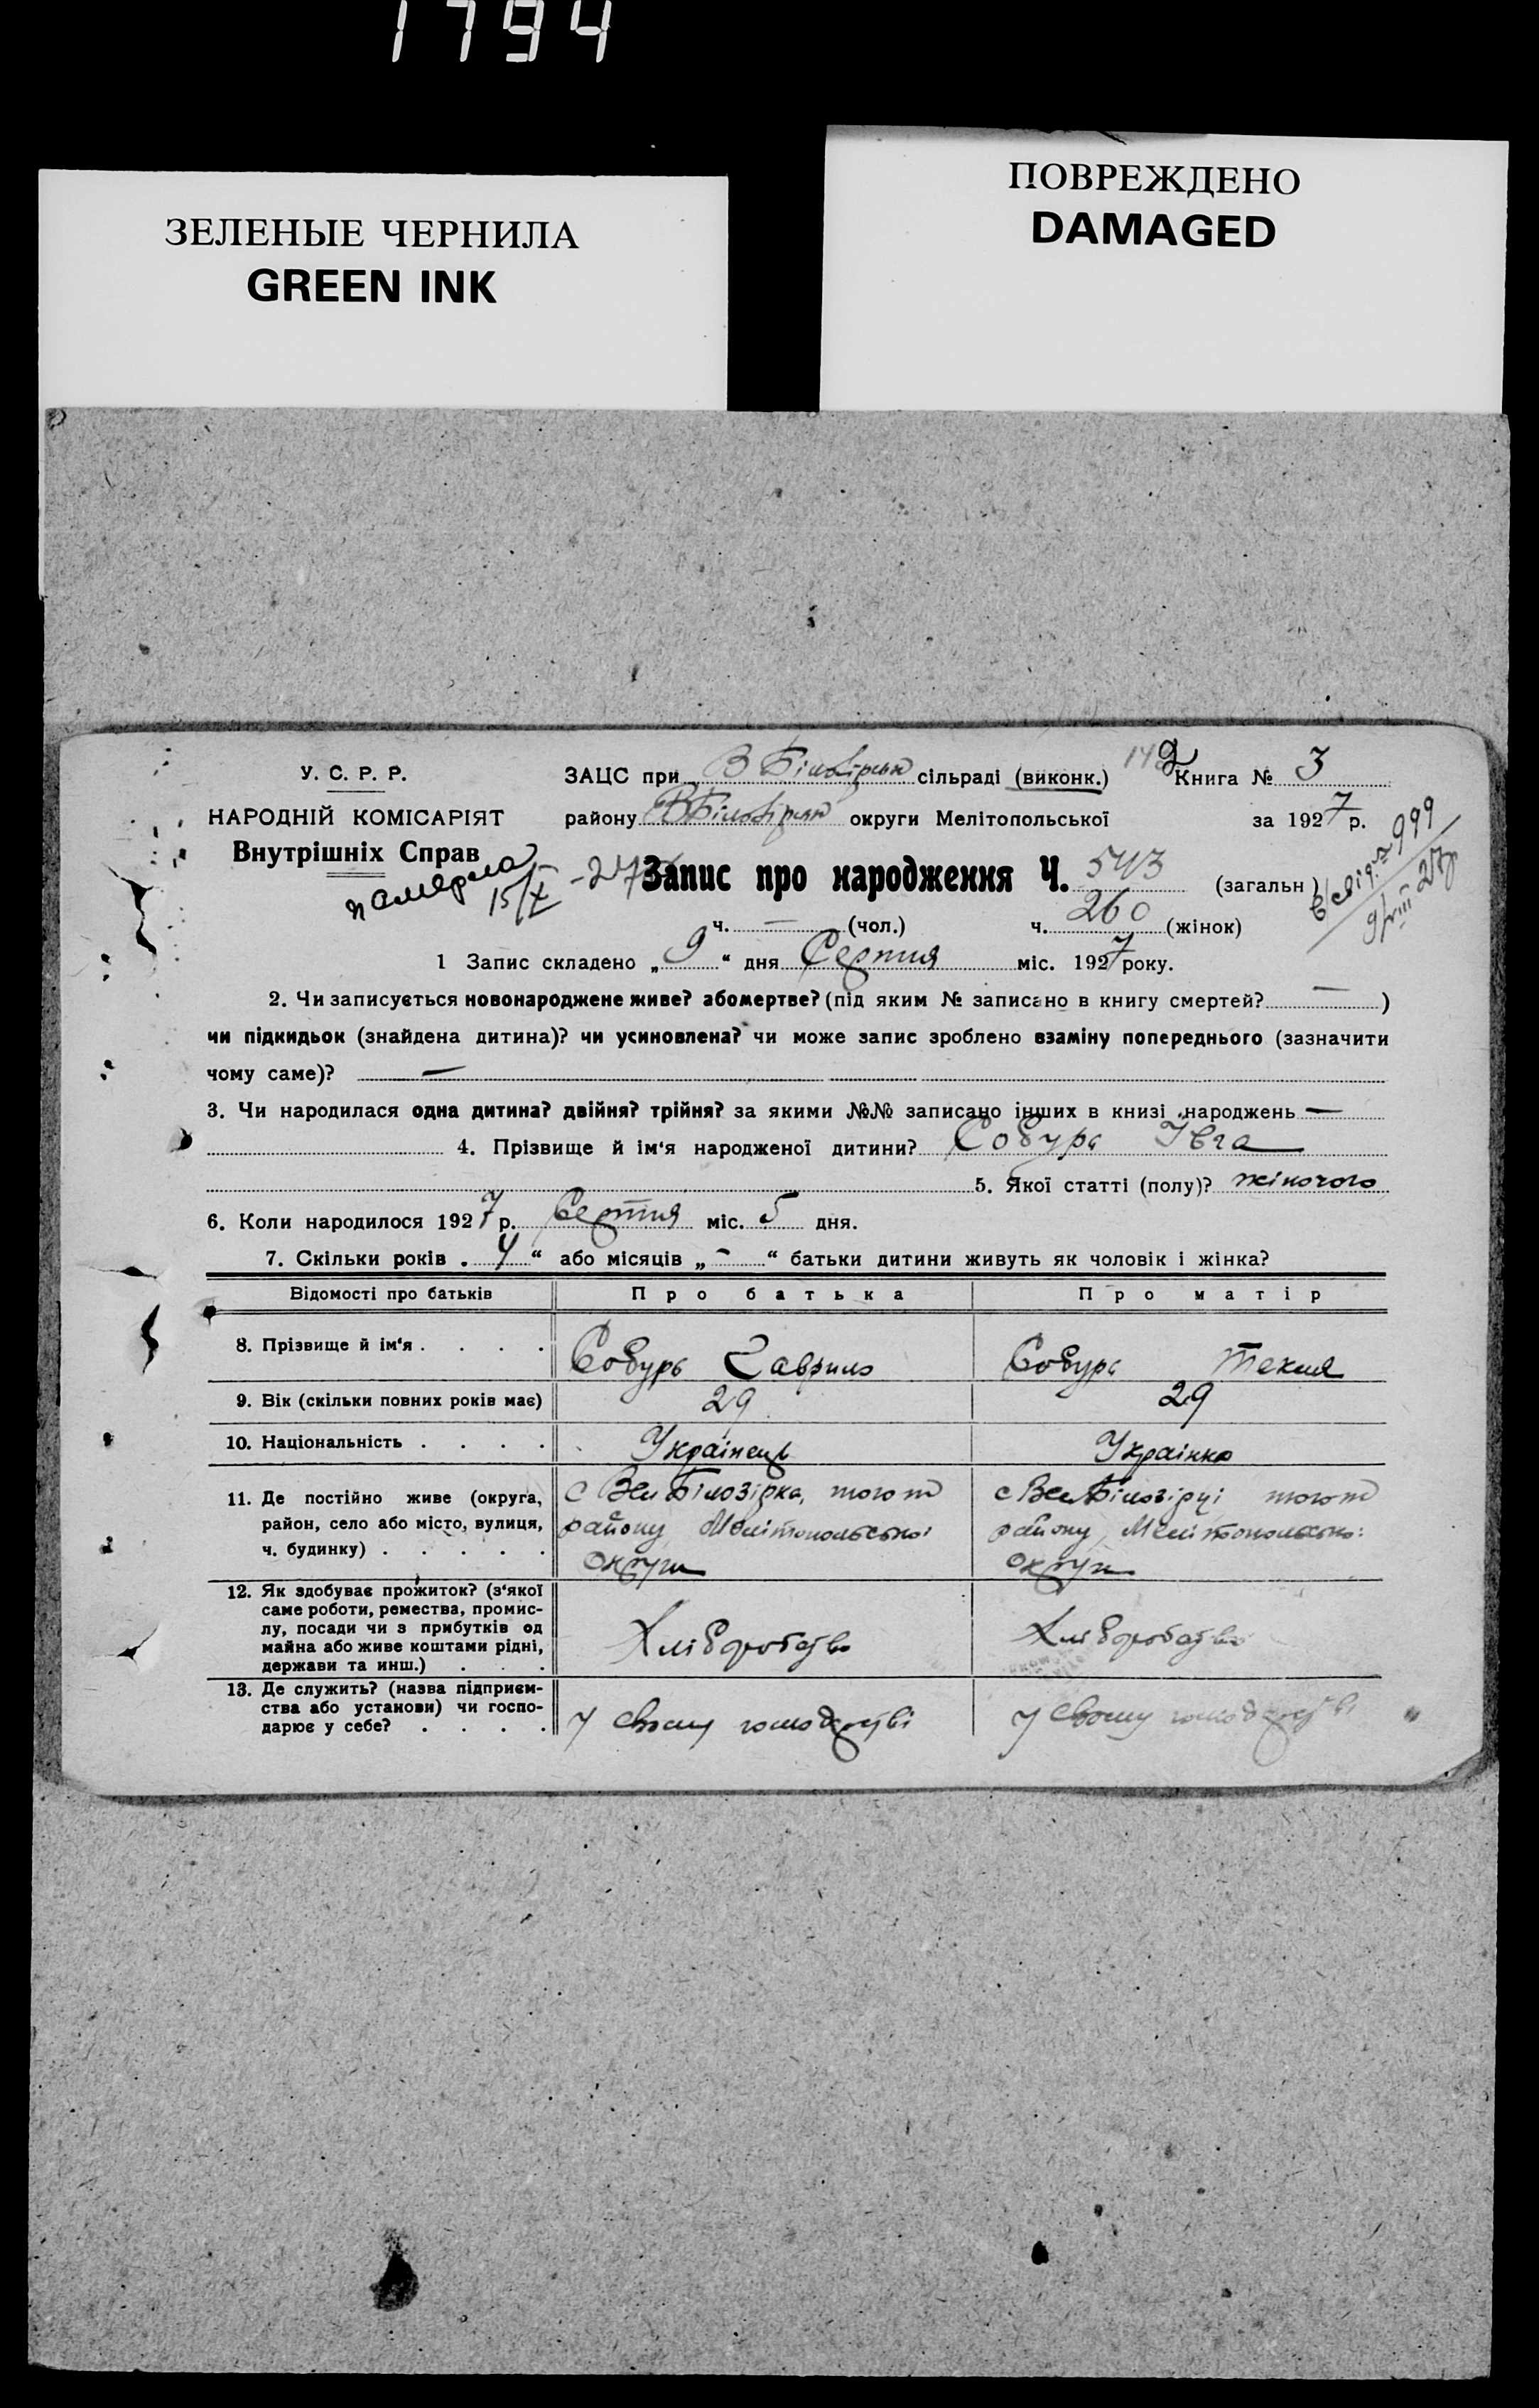 1794
ЗЕЛЕНЫЕ ЧЕРНИЛА
GREEN INK
ПОВРЕЖДЕНО
DAMAGED
У. С. Р. Р.
НАРОДНІЙ КОМІСАРІЯТ
Внутрішніх Справ
померла
15/X -27
ЗАЦС при В Білозірськ сільраді (виконк.)
Книга № 3
району ВБілозірськ округи Мелітопольської
за 1927 р.
999
9/VIII 27р
Запис про народження Ч. 543 (загальн)
ч. — (чол.) ч. 260 (жінок)
1 Запис складено „ 9 “ дня Серпня міс. 1927 року.
2. Чи записується новонароджене живе? абомертве? (під яким № записано в книгу смертей? — )
чи підкидьок (знайдена дитина)? чи усиновлена? чи може запис зроблено взаміну попереднього (зазначити
чому саме)? —
3. Чи народилася одна дитина? двійня? трійня? за якими №№ записано інших в книзі народжень —
4. Прізвище й ім‘я народженої дитини? Собура Івга
5. Якої статті (полу)? жіночого
6. Коли народилося 1927 р. Серпня міс. 5 дня.
7. Скільки років „ 4 “ або місяців „ - “ батьки дитини живуть як чоловік і жінка?
Відомості про батьків Про батька Про матір
8. Прізвище й ім‘я . . . . Собурь Гаврило Собура Текля
9. Вік (скільки повних років має) 29 29
10. Національність . . . . Українець Українка
11. Де постійно живе (округа, с Вел Білозірка, того ж с Вел Білозірці того ж
район, село або місто, вулиця, району Мелітопольської району Мелітопольської
ч. будинку) . . . . . Округи округи
12. Як здобуває прожиток? (з‘якої
саме роботи, ремества, промис-
лу, посади чи з прибутків од Хліборобство Хліборобство
майна або живе коштами рідні,
держави та инш.) . . .
13. Де служить? (назва підприєм-
ства або установи) чи госпо- у свому господарстві у свому господарстві
дарює у себе? . . . .